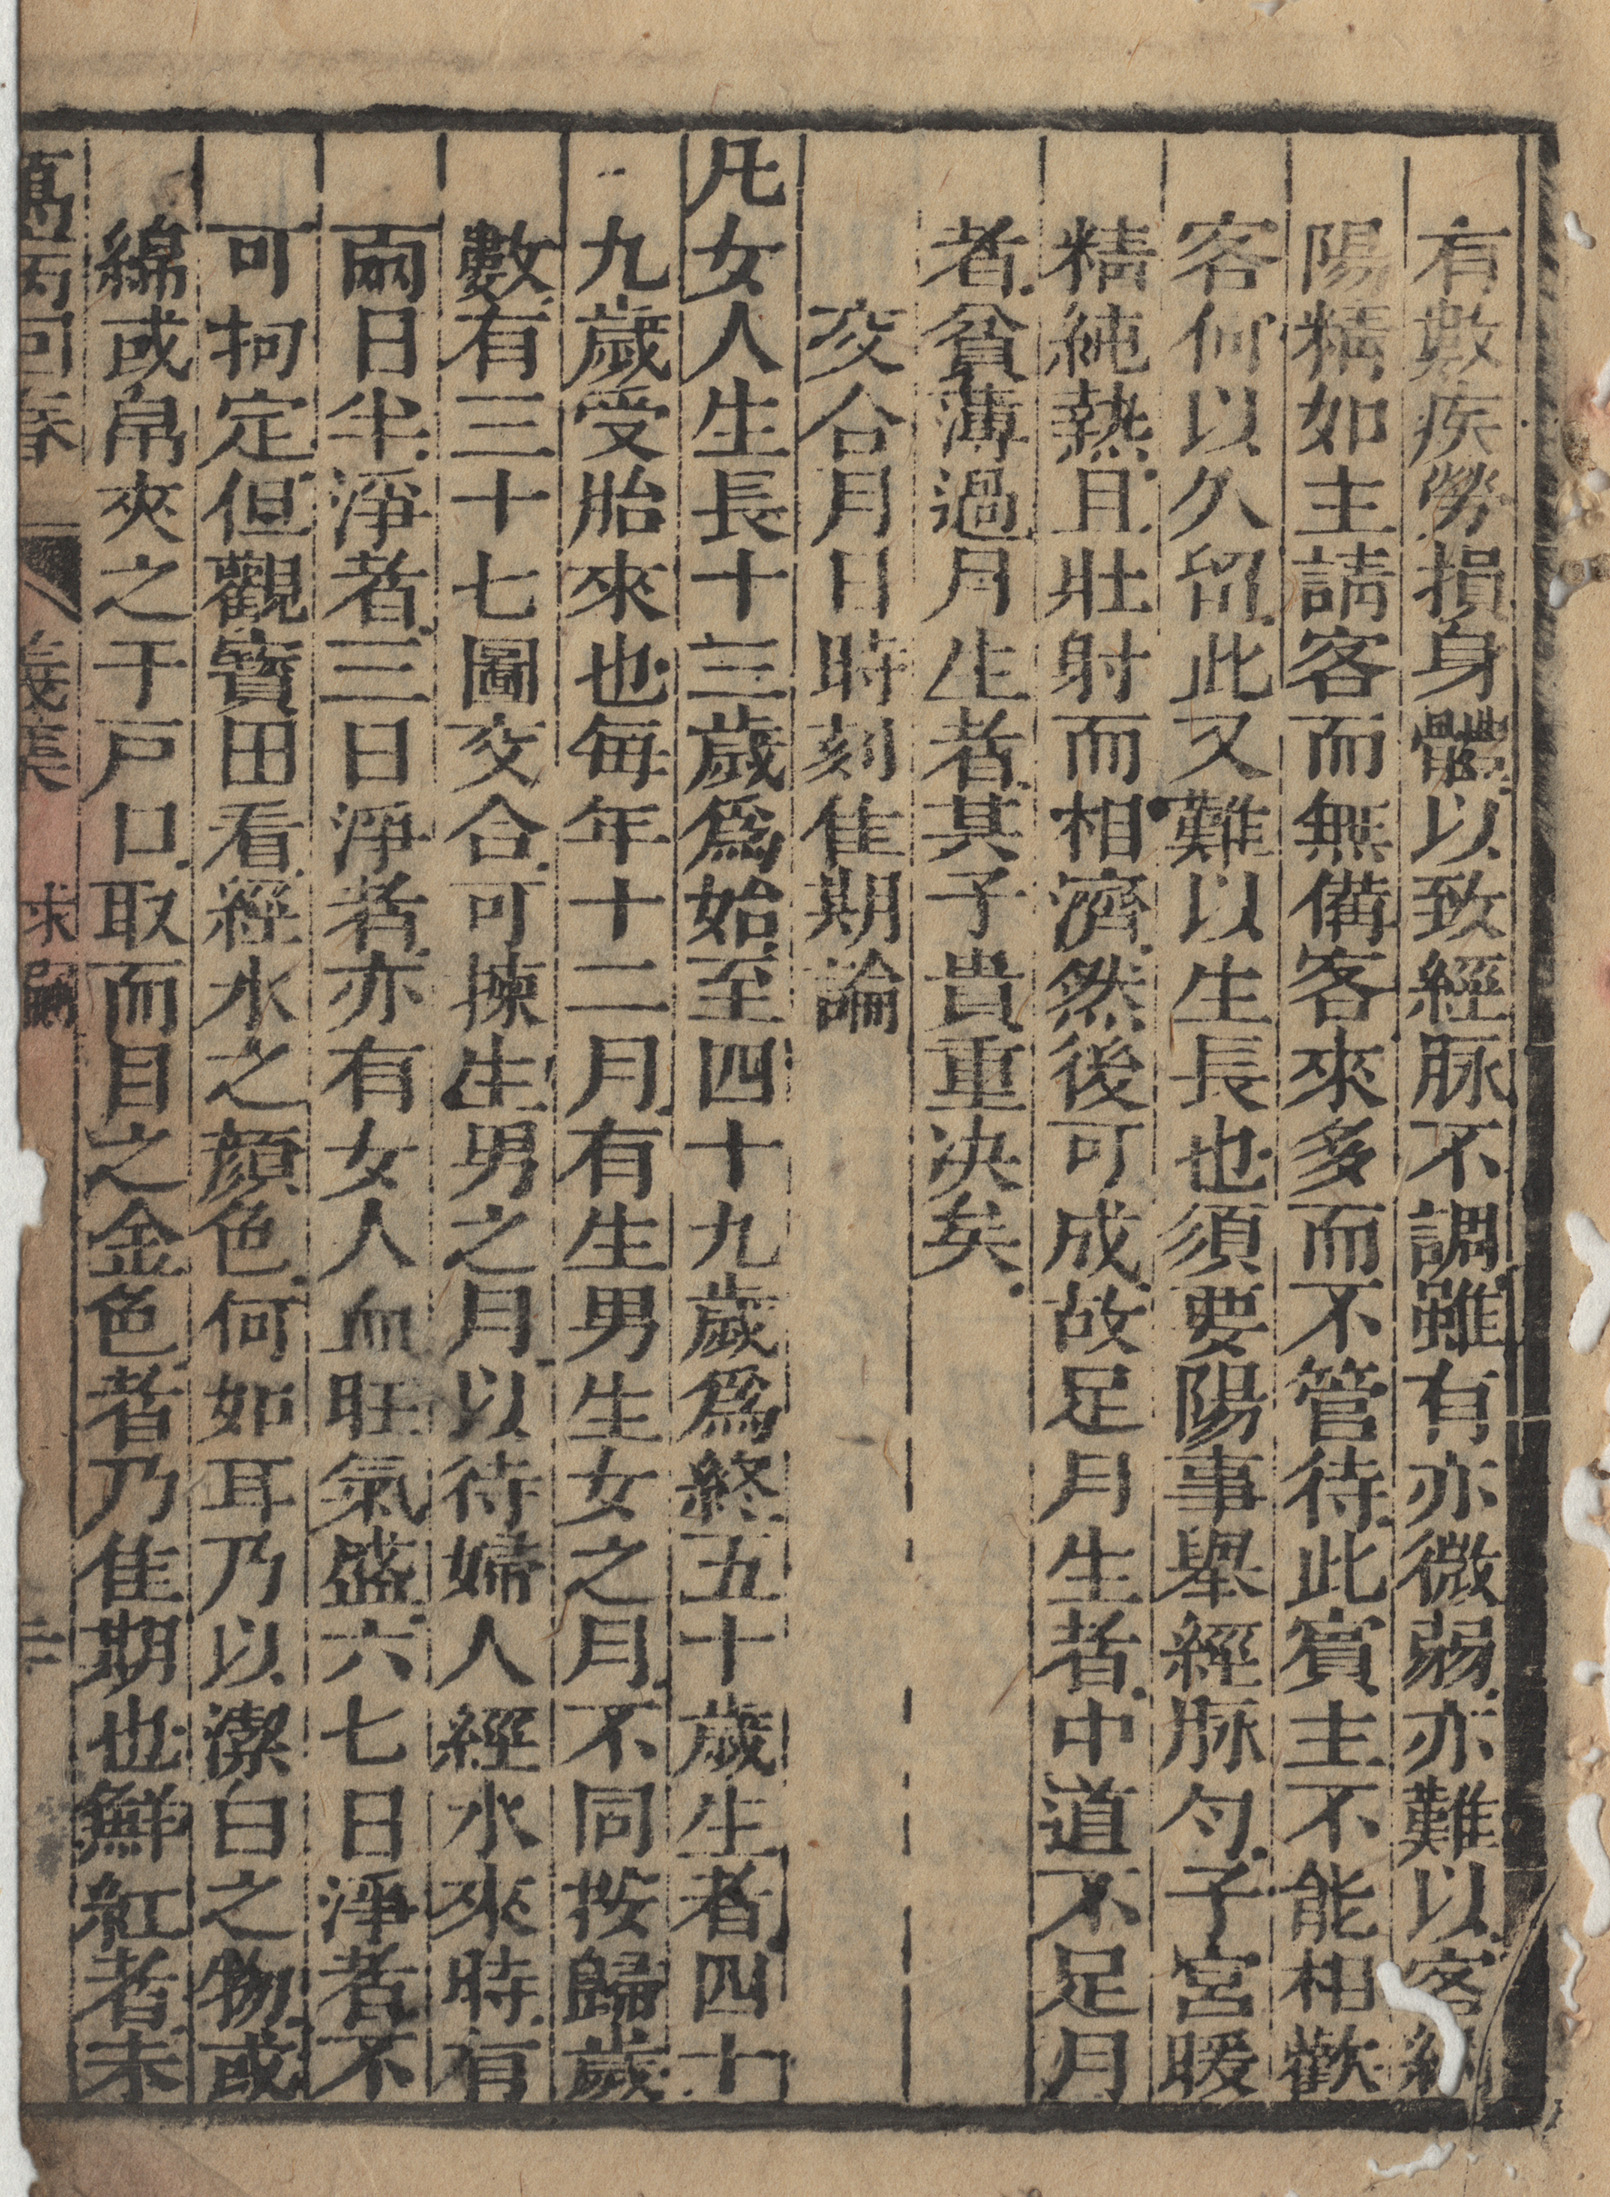 有數疾勞損身體以致經脉不調雖有亦微弱亦難以容納
陽精如主請客而無備客來多而不管待此賓主不能相歡
客何以久留此又難以生長也須要陽事舉經脉勻子宮暖
精純熱且壯射而相濟然後可成故足月生者中道不足月
者貧薄過月生者其子貴重决矣
交合月日時刻隹期論
凡女人生長十三歲爲始至四十九歲爲終五十歲生者四十
九歲受胎來也每年十二月有生男生女之月不同按歸歲
數有三十七圖交合可揀生男之月以待婦人經水來時有
兩日半淨者三日淨者亦有女人血旺氣盛六七日淨者不
可拘定但觀寳田看經水之顔色何如耳乃以潔白之物或
綿或帛夾之于戸口取而目之金色者乃隹期也鮮紅者未
萬病回春 義集 求嗣 三